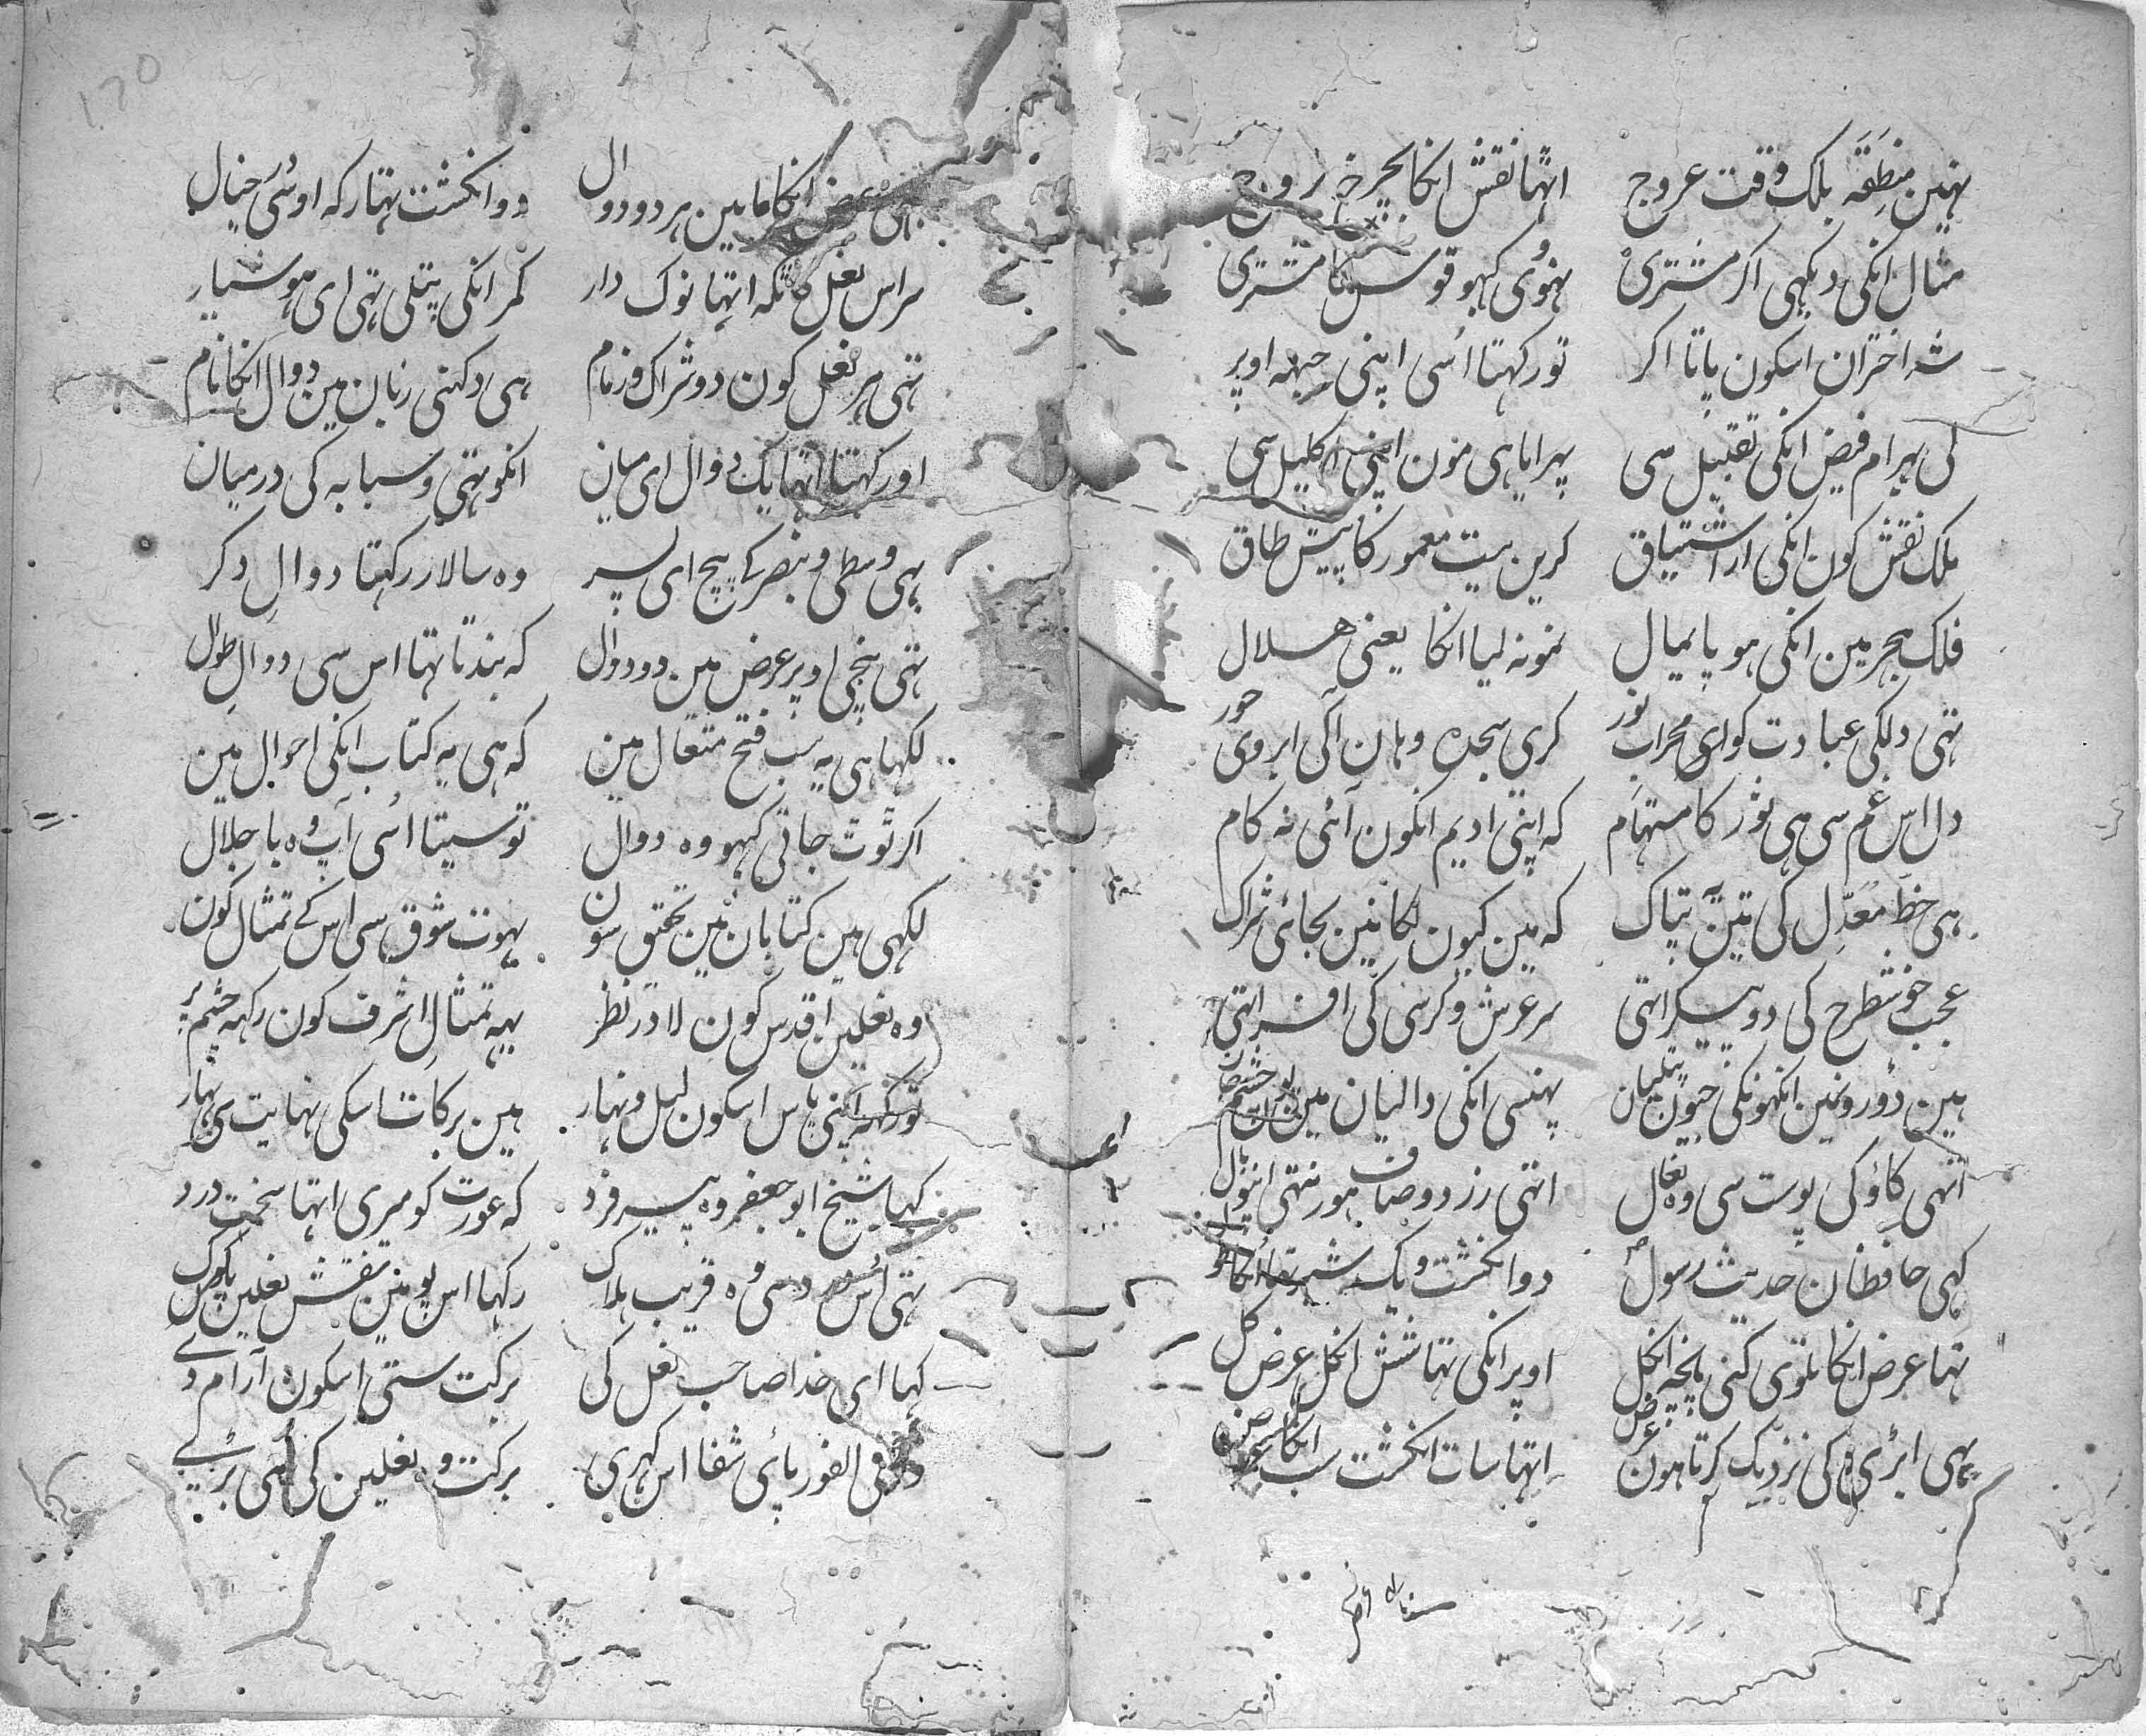 نہین منطَقَہ بلک وقت عروج اتہا نقش انکا بچرخ بروج
مثال انکی دیکہی اکر مشتری بہنوی کہو قوس کا مشتری
شہ اختران اسکون پاتا اکر تو رکہتا اُسی اپنی جبہہ اوپر
کی بہرام فیض انکی تقبیل سی پہرایا ہی مون اپنی اکلیل سی
ملک نقش کون انکی از اشتیاق کرین بیت معمور کا پیش طاق
فلک ہجر مین انکی ہو پایمال نمونہ لیا انکا یعنی ہلال
تہی دلکی عبادت کو ای محراب نور کری سجدہ وہان آکی ابروی حور
دل اس غم سی ہی ثور کا مستہام کہ اپنی ادیم انکون آئی نہ کام
ہی خط معدّل کی تین پیتاک کہ مین کیون لکا نین بجائی شراک
عجب خوشطرح کی دو پیکر اتہی سر عرش و کرسی کی افسر اتہی
ہین دو رو مین انکہونکی جیون پتلیان پہنسی انکی دالیان مین
اتہی کاؤ کی پوست سی وہ نعال اتہی زرد و صاف ہور نتہی
کہی حافظان حدیث رسولؐ دو انکشت ویک شبر تہا انکا طول
تہا عرض انکا تلوی کنی پنجہ انکل اوپر انکی تہا شش انکل عرض کل
یہی ایڑی کی نزدیک کرتا ہون عرض اتہا سات انکشت سب انکا عرض
ہی عرض انکا مابین ہر دو دوال دو انکشت تہا رکہ اوسی خیال
سر اس نعل کا نکہ اتہا نوک دار کمر انکی پتلی تہی ای ہوشیار
تہی ہر نعل کون دو شراک و زمام ہی دکہنی زبان مین دوال انکا نام
اور کہتا اتہا یک دوال ای میان انکوتہی و سبابہ کی درمیان
بہی وسطی و بنصر کے بیچ ای پسر وہ سالار رکہتا دوال دکر
تہی نیچی اوپر عرض مین دو دوال کہ بندتا تہا اس سی دوال طول
لکہا ہی یہ سب فتح متعال مین کہ ہی یہ کتاب انکی احوال مین
اکر توت جاتی کہو وہ دوال تو سیتا اُسی آپ وہ با جلال
لکہی ہین کتابان مین تحقیق سون بہوت شوق سی اس کے تمثال کون
وہ نعلین اقدس کون لا در نظر یہہ تمثال اشرف کون رکہہ چشم پر
تو رکہہ اپنی پاس اسکون لیل و نہار ہین برکات اسکی نہایت سی بہار
کہیا شیخ ابو جعفر وہ پیر فرد کہ عورت کو میری اتہا سخت درد
تہی اُس درد سی وہ قریب ہلاک رکہا اس پو مین نقش نعلین پاک
کہا ای خدا صاحب نعل کی برکت ستی اسکون آرام دے
وہی فی الفور پائی شفا اس کہری برکت وہ نعلین کی